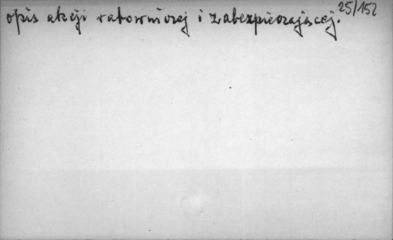 opis akcji ratowniczej i zabezpieczającej. 25/152